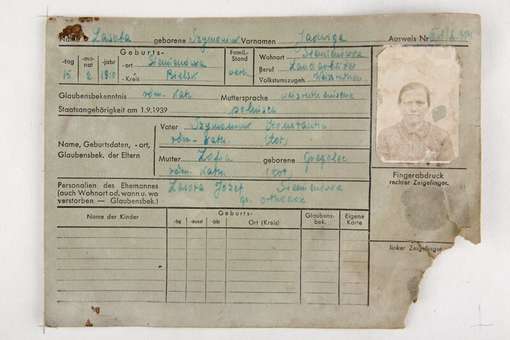 Name Lasota geborene Szymaniuk Vornamen Jadwiga Ausweis Nr
Geburts- Famil.-Stand Wohnort Siemianówka
-tag -monat -jahr -ort Siemianówka Beruf
15 2 -Kreis Bielsk verh. Volkstumszugeh.
Glaubensbekenntnis röm. kath. Muttersprache
Staatsangehörigkeit am 1.9.1939 polnisch
Vater Szymaniuk Konstantin
röm. kath. (tot)
Name, Geburtsdaten, -ort,
Glaubensbek. der Eltern
Mutter Zofia geborene
röm. kath. (tot)
Personalien des Ehemannes Lasota Józef Siemianówka
(auch Wohnort od. wann u. wo
verstorben – Glaubensbek.) gr. orthodox
Name der Kinder Geburts- Glaubens-bek. Eigene Karte
-tag -monat -jahr Ort (Kreis)
Fingerabdruck
rechter Zeigefinger.
linker Zeigefinger